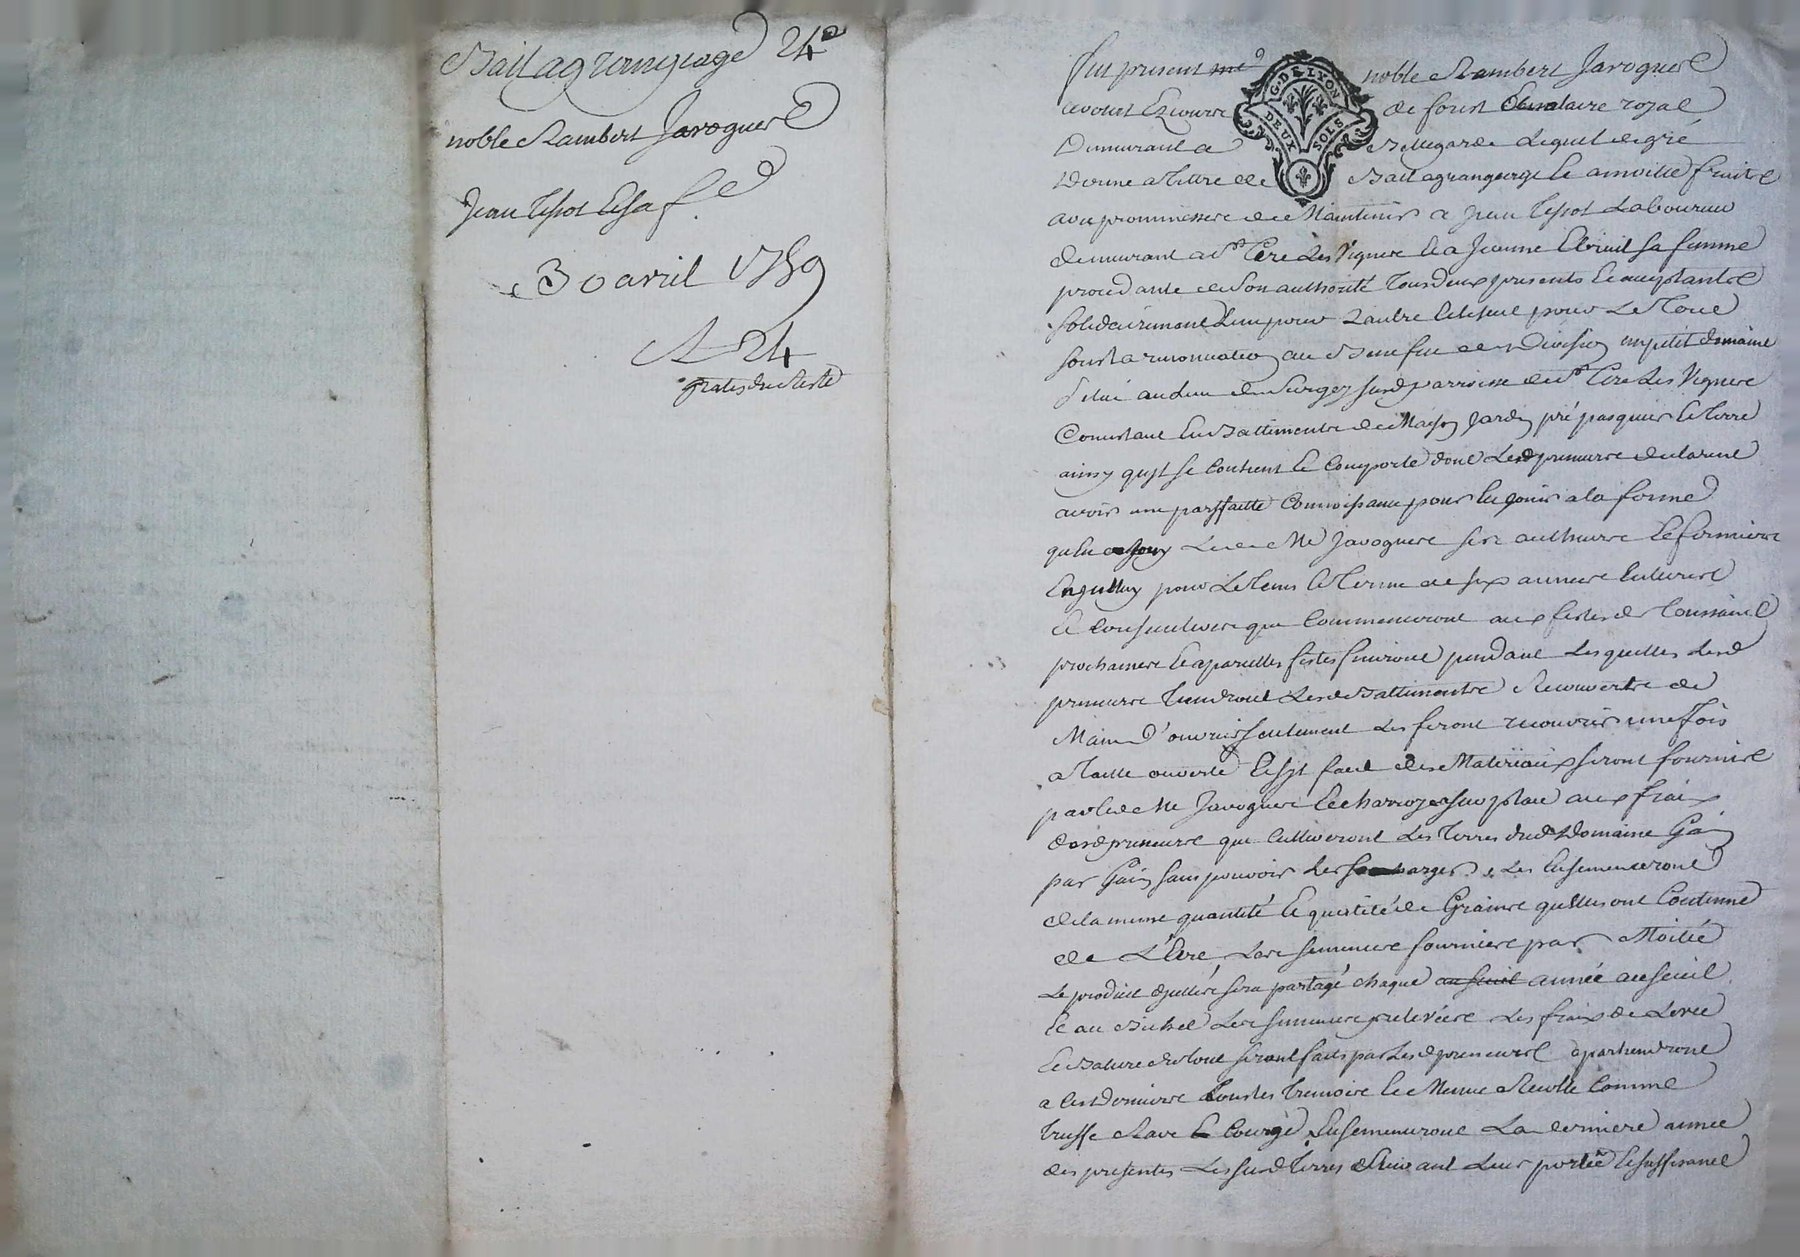 Bail a grangeage 24e
noble Rambert Javogues
Jean Tissot et sa fe
30 avril 1789
R 24
gratis du reste
G.D. DE LYON
DEUX SOLS
fut present noble Rambert Javogues
avocat Ecuyer de forest Notaire royal
Demurant a Bellegarde Lequel de gré
Donne a tittre de Bail a grangeage le amoitié fruits
avec prommesse de Maintenir a jean Tissot Laboureur
demurant a St Cire Les Vignes et a Jeanne sa femme
procedante de Son authorité Tous deux presents et acceptants
Solidairement L'un pour L'autre et le seul pour Le Tout
sous la renonciation au Benefice de Division un petit domaine
Situé au Lieu de Surizey susd parroisse de St Cire Les Vignes
Consistant En Battiments de Maison Jardin pré pasquier et Terre
ainsy qu'il se Contient et Comporte dont Lesd preneurs declarent
avoir une parffaitte Connoissance pour En jouir a la forme
qu'En ont jouy Led Me Javogues ses autheurs et fermiers
pour Le Tems et Terme de six années Entieres
et Consecutives qui Commenceront aux festes de Toussaint
prochaines et a pareilles festes finiront pendant Lesquelles Lesd
preneurs Tiendront Lesd Battiments Recouverts de
Main D'ouvrier seulement Les feront recouvrir une fois
a Taille ouverte Et s'il faut des Materiaux seront fournis
par led Me Javogues et charroyés sur place aux frais
desd preneurs qui Cultiveront Les Terres dud Domaine Gain
par Gain sans pouvoir les surcharger, Les Ensemenceront
de la meme quantité et qualité de Graines qu'elles ont Coutume
de L'Etre Les semences fournies par Moitié
Le produit d'icelles sera partagé chaque année au seuil
et au Bichet Les semences prelevées Les frais de Levée
et Batture du tout seront faits par Lesd preneurs apartiendront
a Ces Derniers Tous les Tremois et Menue Recolte Comme
Truffe Rave et Courge, Ensemenceront La derniere année
des presentes Les susd Terres Suivant Leur portée et suffisance